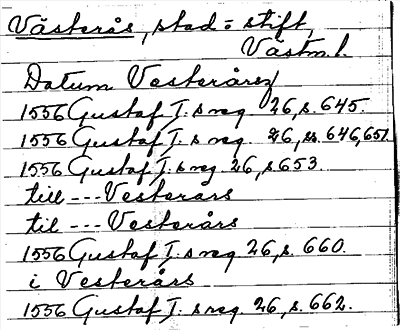 Västerås, stad = stift,
Västm.l.
Datum Vesterårsz
1556 Gustaf I.s reg 26, s. 645.
1556 Gustaf I.s reg. 26, ss. 646, 651.
1556 Gustaf I.s reg. 26, s. 653.
till --- Vesterårs
til --- Vesterårs
1556 Gustaf I.s reg 26, s. 660.
i Vesterårs
1556 Gustaf I.s reg. 26, s. 662.